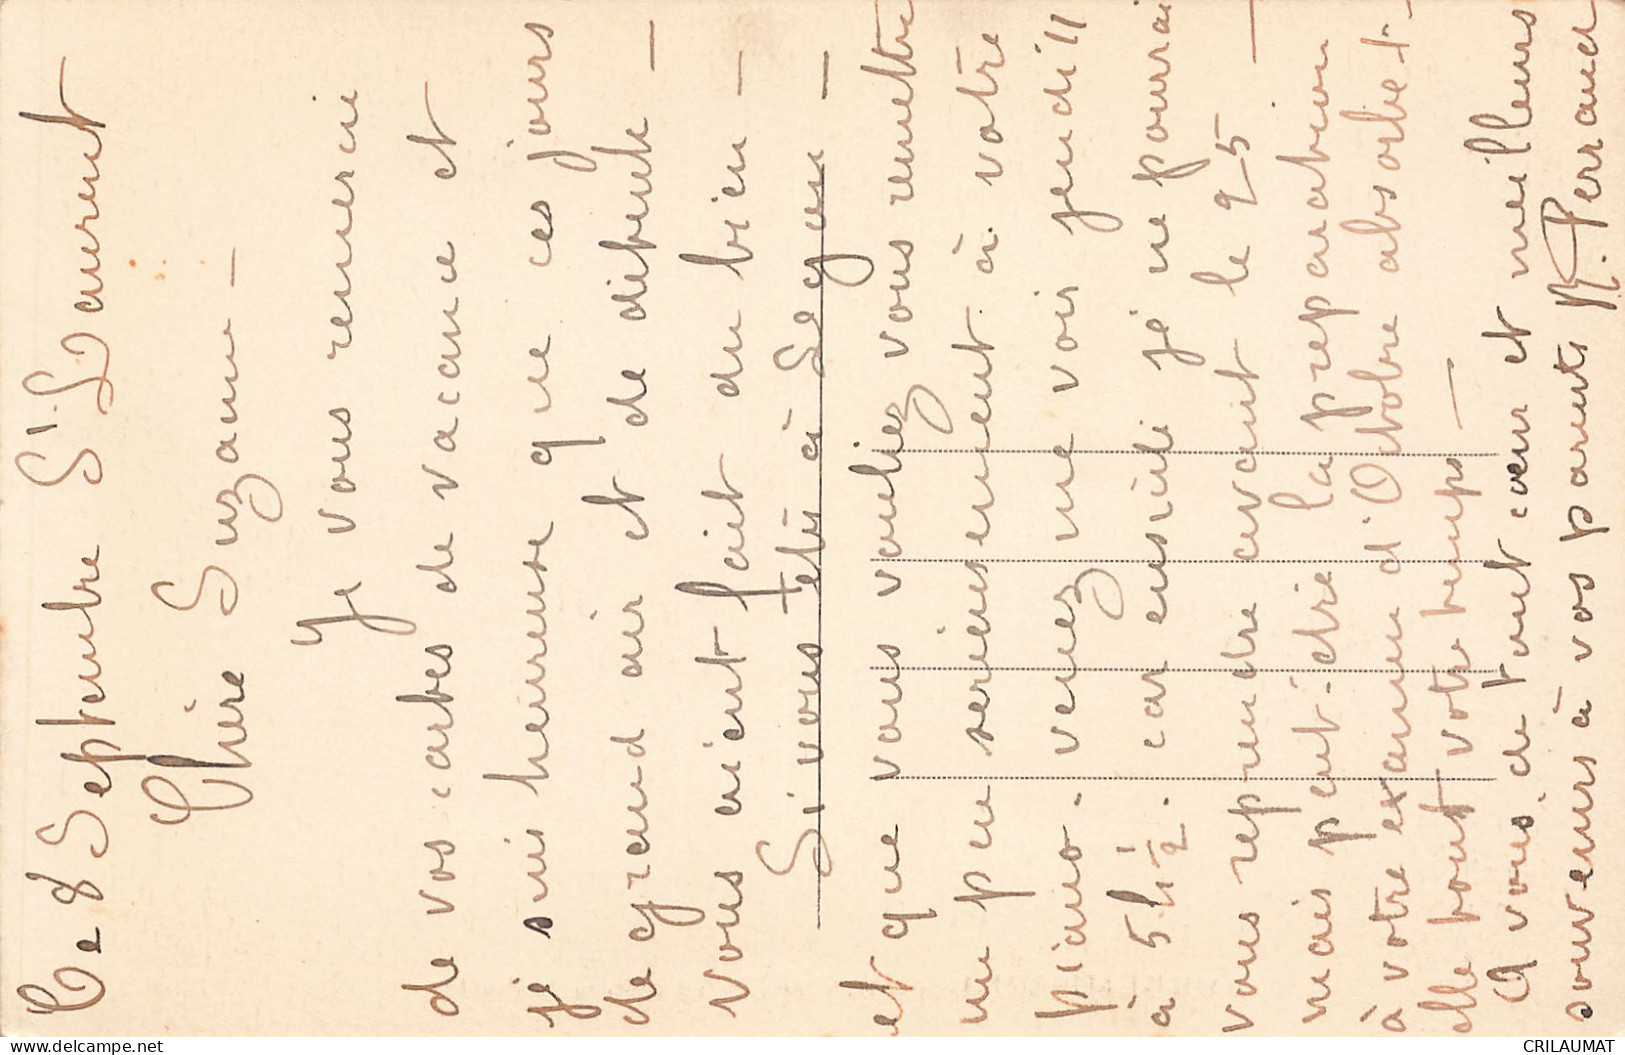 Ce 8 Septembre St Laurent
Chère Suzanne –
Je vous remercie
de vos cartes de vacance et
je suis heureuse que ces jours
de grand air et de détente –
vous aient fait du bien –
Si vous êtes à Segou –
et que vous vouliez vous remettre
un peu sérieusement à votre
piano. venez me voir jeudi 11
à 5h ½. car ensuite je ne pourrai
vous reprendre avant le 25 –
mais peut-être la préparation
à votre examen d'Octobre absorbe t-
elle tout votre temps –
A vous de tout cœur et meilleurs
souvenirs à vos parents R. Perraud
www.delcampe.net
CRILAUMAT